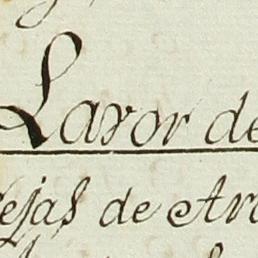 Lavor de
ejas de Ar